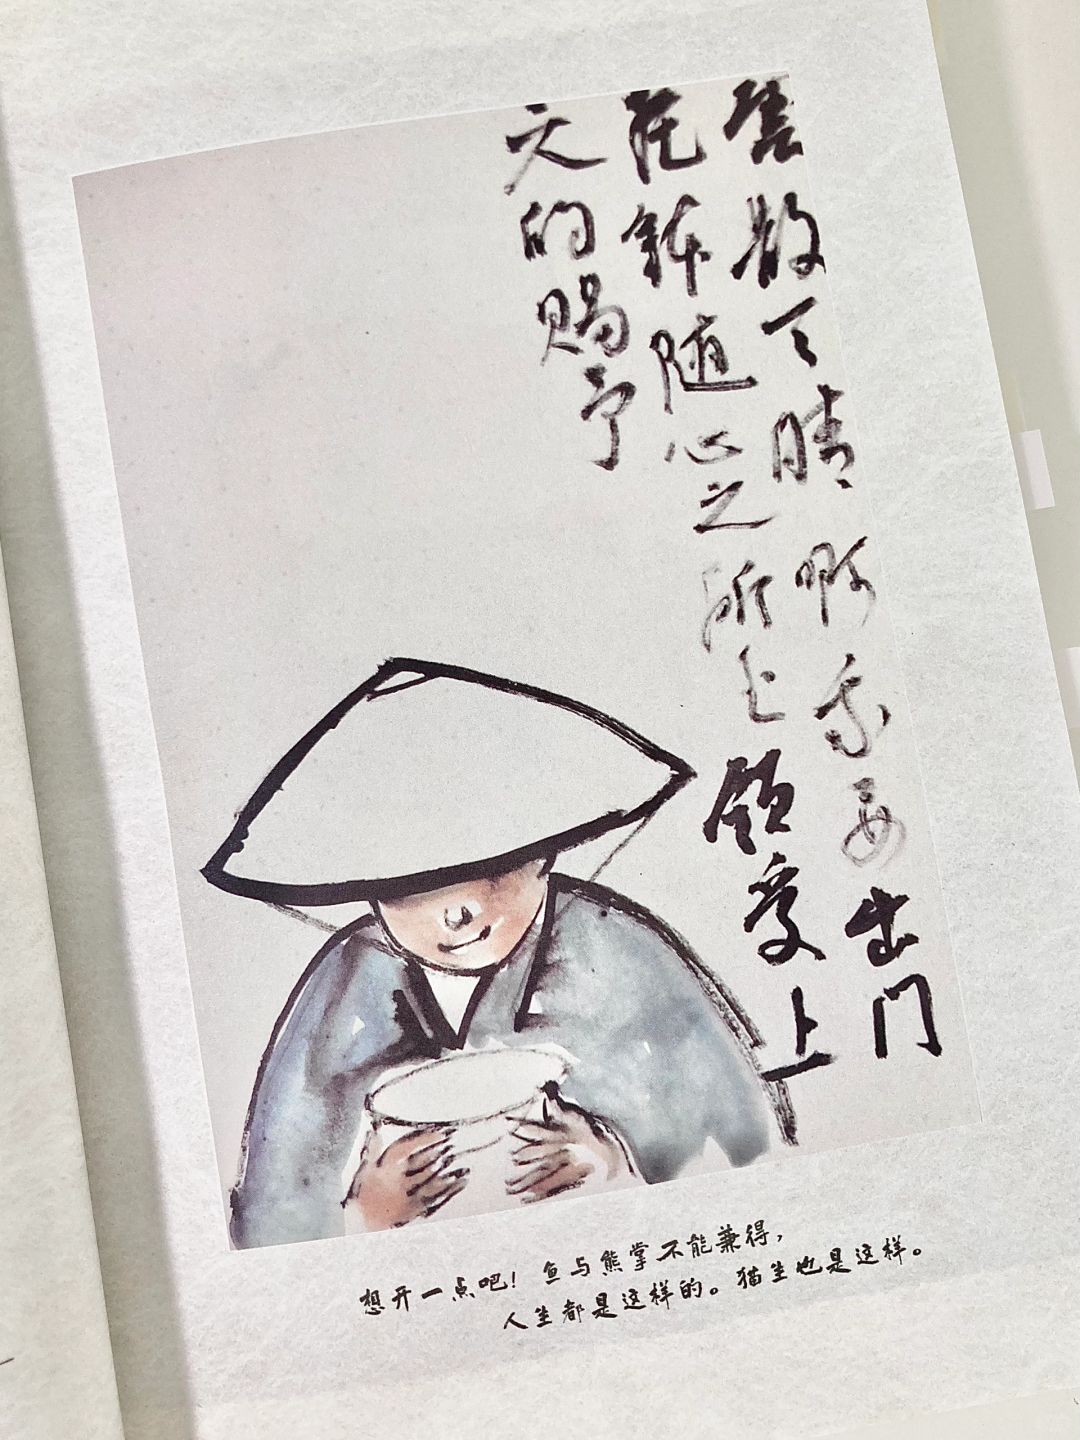 雲散天晴啊我要出门
托钵随心之所至领受上
天的赐予
想开一点吧！鱼与熊掌不能兼得，
人生都是这样的。猫生也是这样。